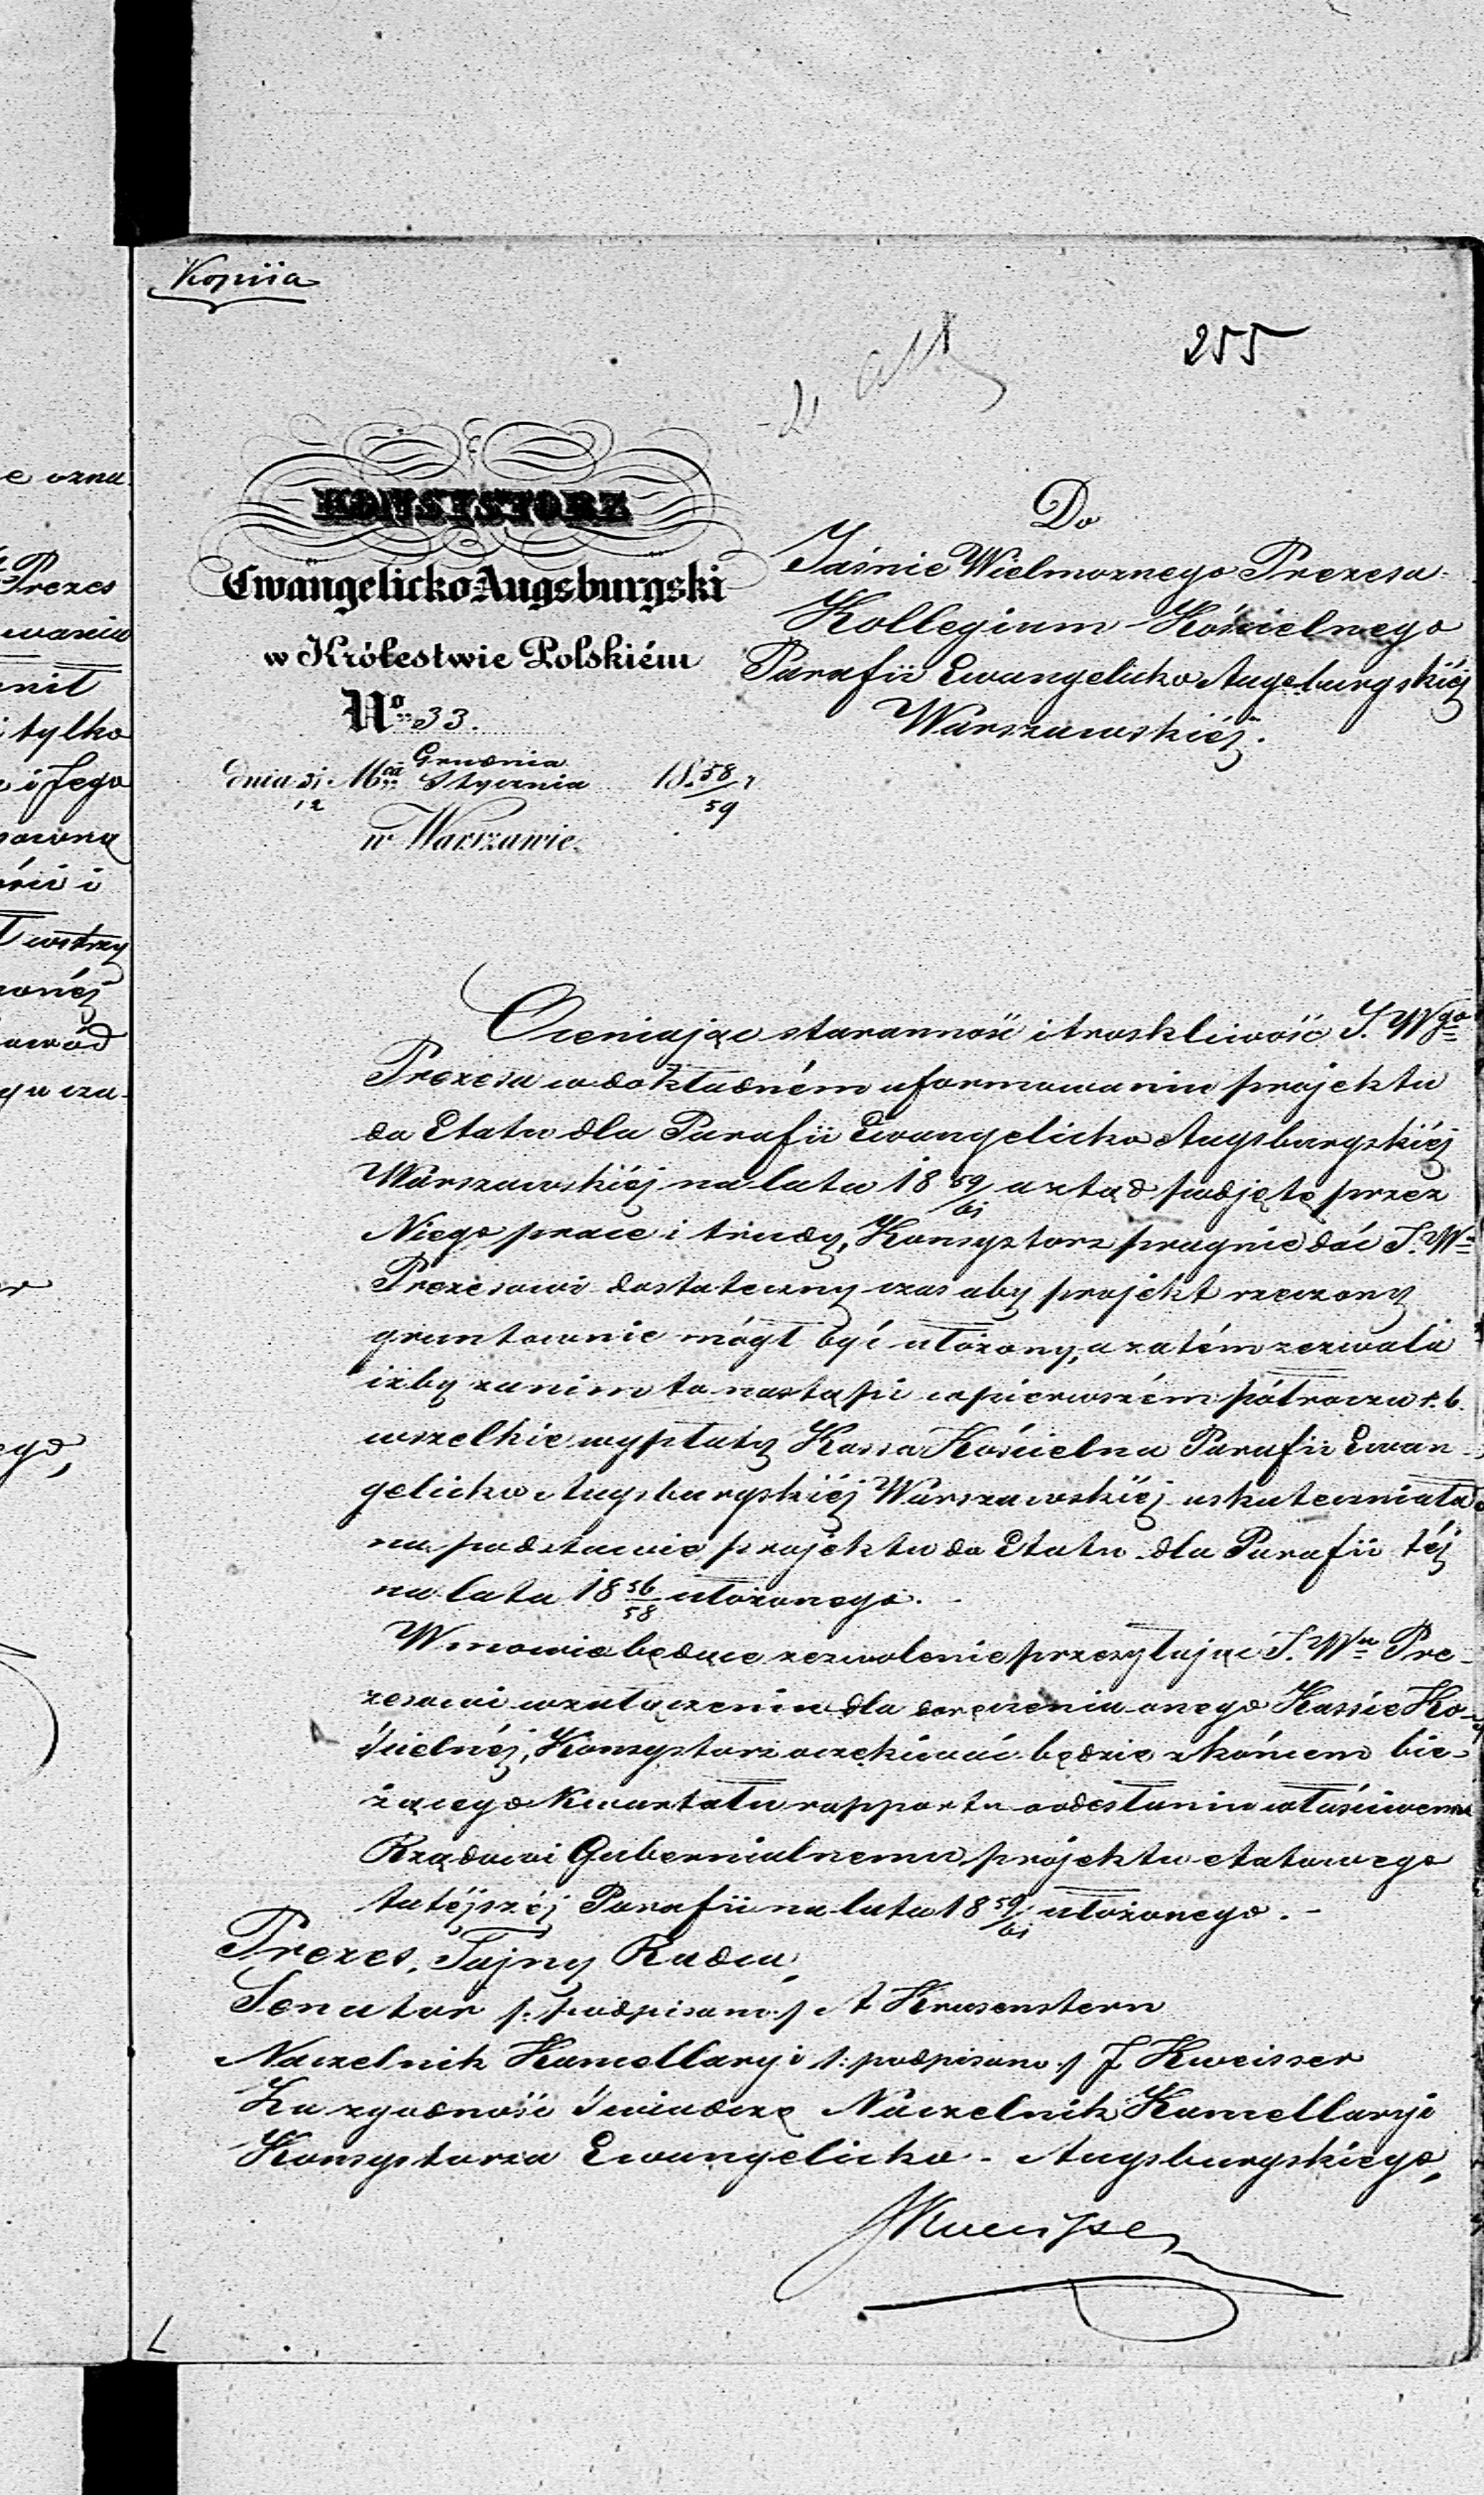 Kopiia
255
Do
KONSYSTORZ
Jaśnie Wielmożnego Prezesa
Ewangelicko-Augsburgski
Kollegium Kościelnego
w Królestwie Polskiém
Parafii Ewangelicko Augsburgskiéj
Nº 33.
Warszawskiéj.
dnia 31/12 Mca Grudnia/Stycznia 18 58/59 r
w Warszawie.
Oceniając staranność i troskliwość J. Wgo
Prezesa w dokładném uformowaniu projektu
do Etatu dla Parafii Ewangelicko Augsburgskiéj
Warszawskiéj na lata 18 59/61 a ztąd podjętę przez
Niego prace i trudy, Konsystorz pragnie dać J. Wu
Prezesowi dostateczny czas aby projekt rzeczony
gruntownie mógł być ułożony, a zatém zezwala
iżby zanim to nastąpi w pierwszém półroczu r. b.
wszelkie wypłaty Kassa Kościelna Parafii Ewan-
gelicko Augsburgskiéj Warszawskiéj uskuteczniała
na podstawie projektu do Etatu dla Parafii téj
na lata 18 56/58 ułożonego.
W mowie będące zezwolenie przesyłając J. Wu Pre-
zesowi w załączeniu dla doręczenia onego Kassie Ko-
ścielnéj, Konsystorz oczekiwać będzie z końcem bie-
żącego Kwartału rapportu o odesłaniu właściwemu
Rządowi Gubernialnemu projektu etatowego
tutéjszéj Parafii na lata 18 59/61 ułożonego. -
Prezes, Tajny Radca,
Senator /: podpisano :/ A Krusenstern
Naczelnik Kancellaryi /: podpisano :/ J Kweisser
Za zgodność świadczę Naczelnik Kancellaryi
Konsystorza Ewangelicko-Augsburgskiego,